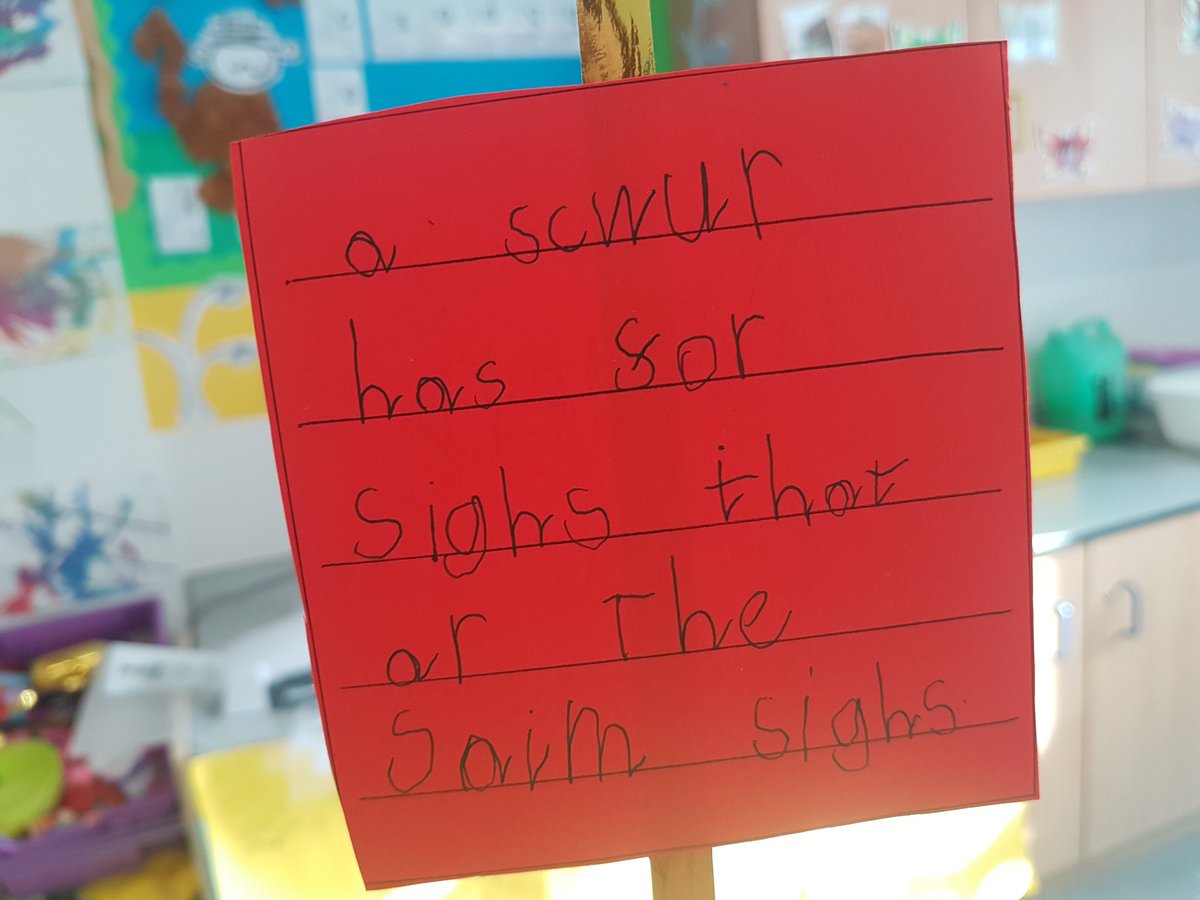 a scwur
has for
sighs that
ar The
Saim sighs